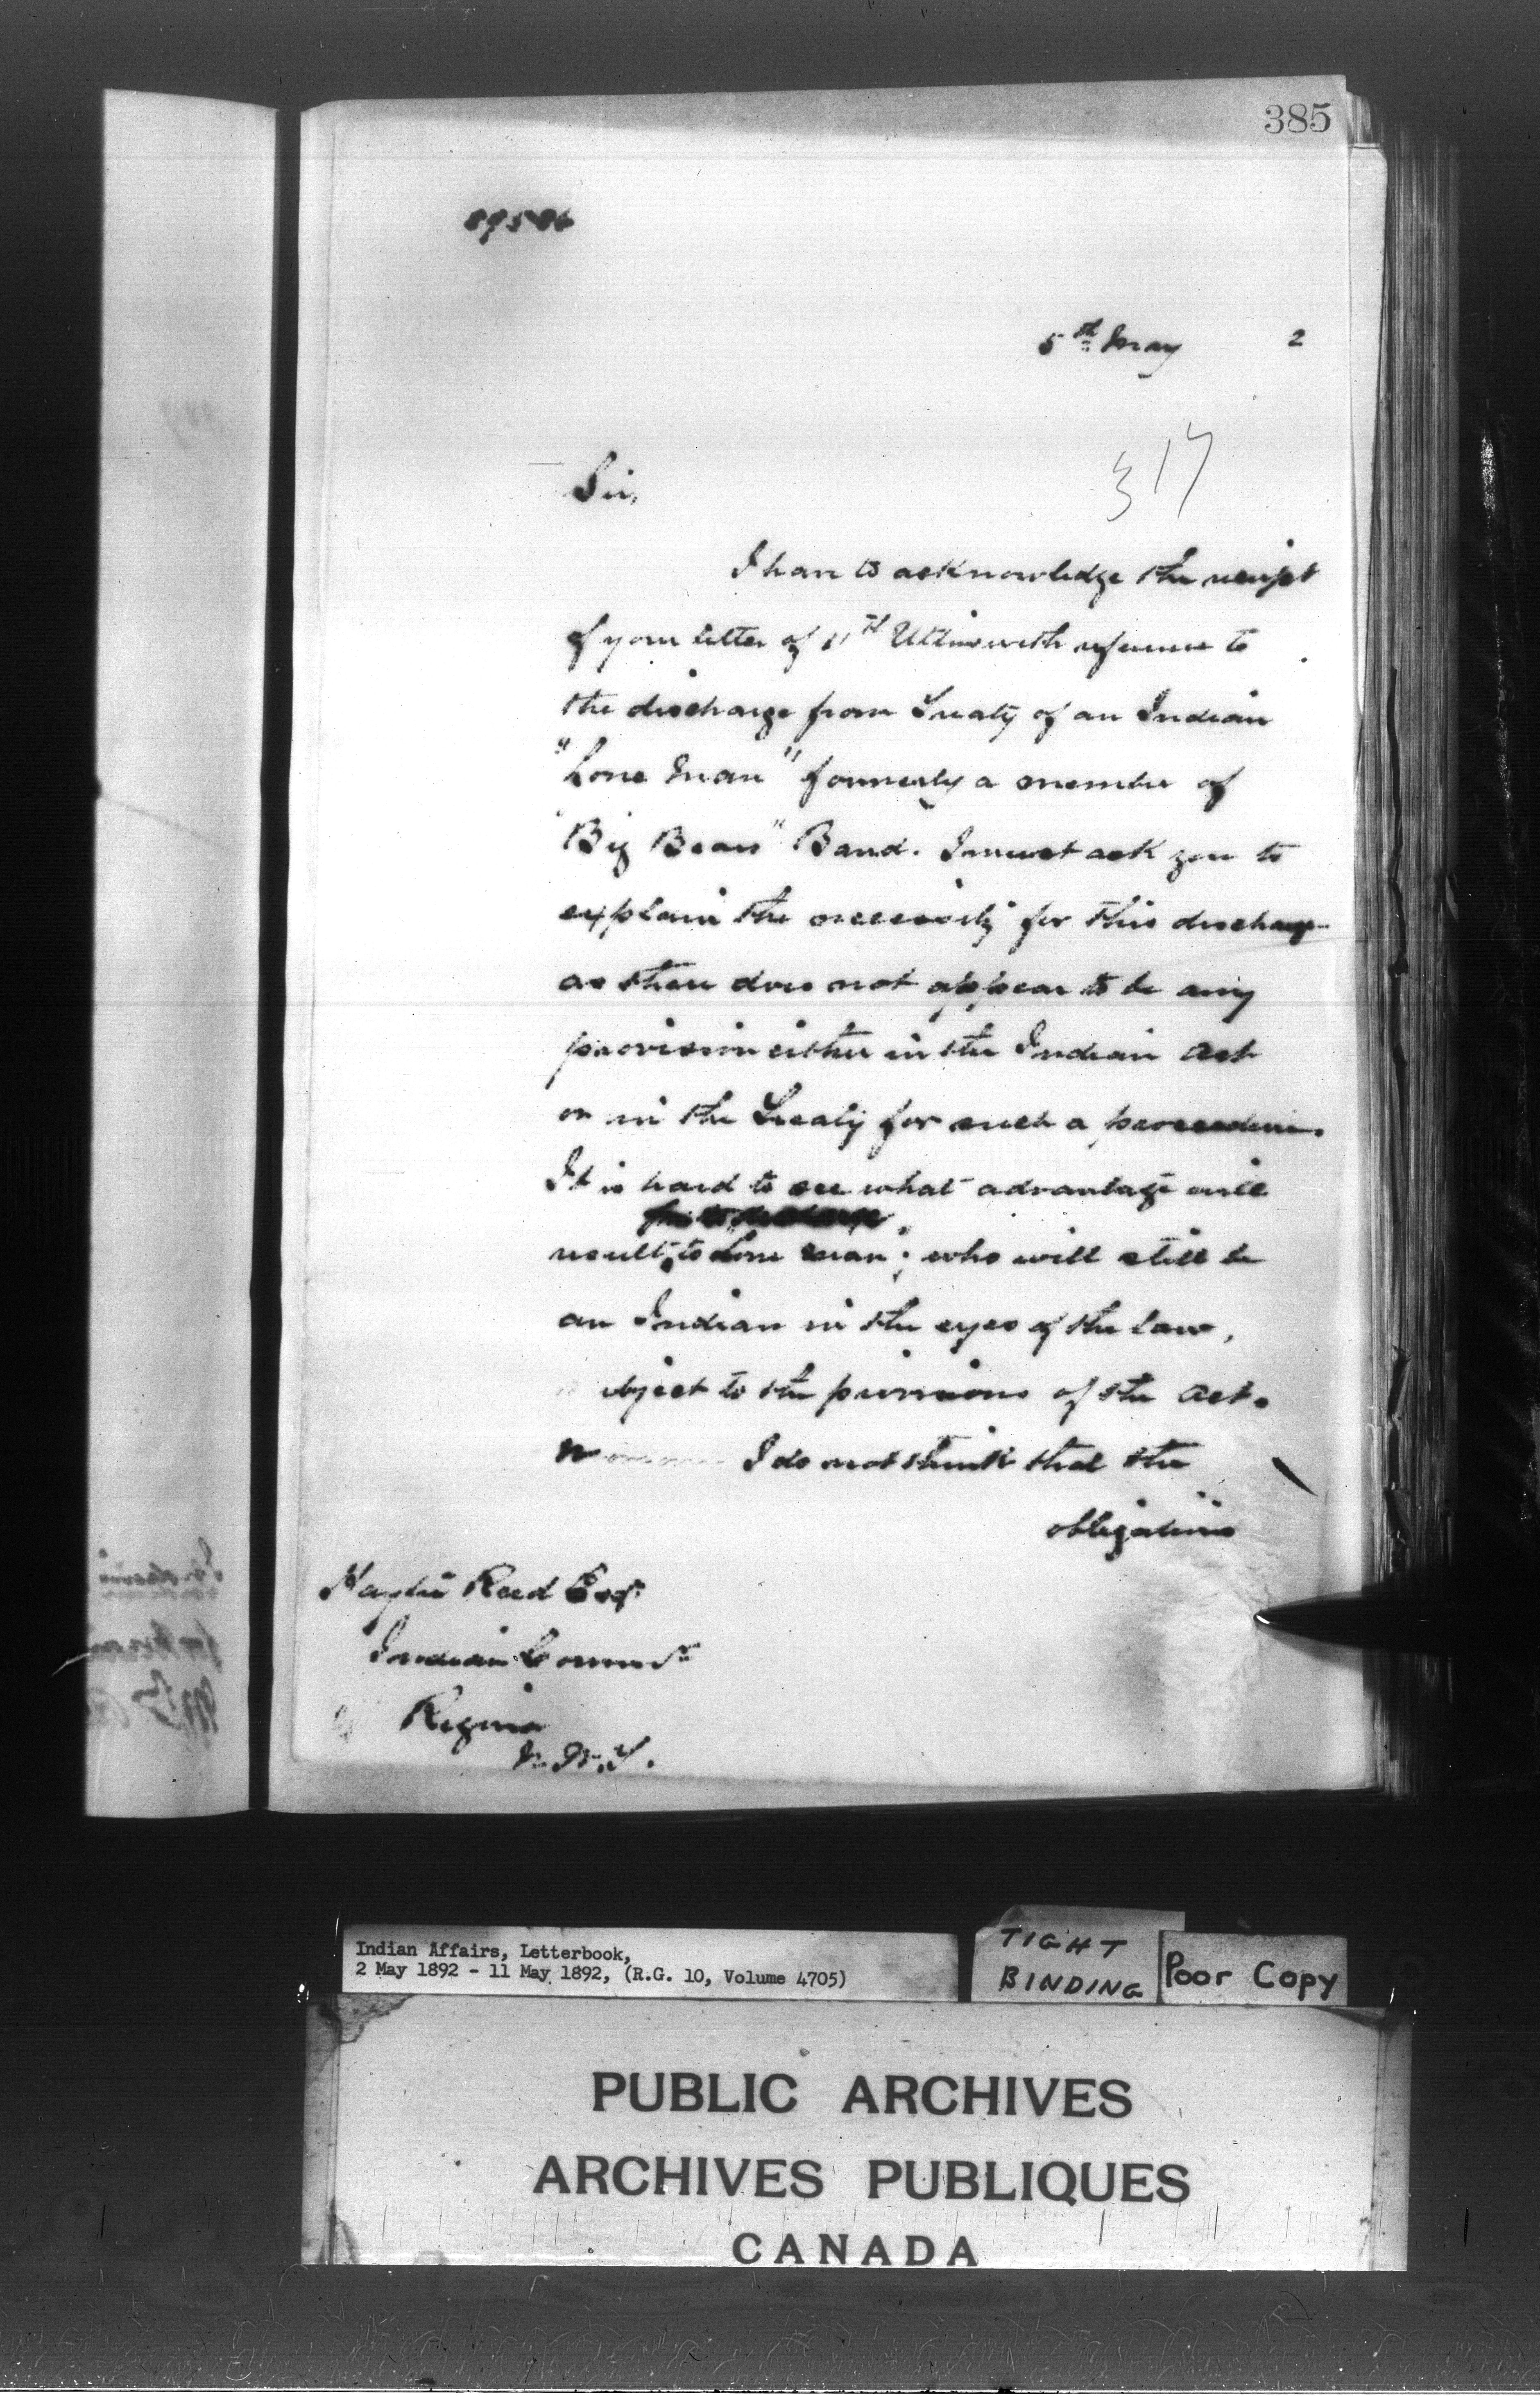 385
89586
5th May 2
317
Sir,
I have to acknowledge the receipt
of your letter of 11th Ultimo with reference to
the discharge from Treaty of an Indian
"Lone Man" formerly a member of
"Big Bears" Band. I must ask you to
explain the necessity for this discharge
as there does not appear to be any
provision either in the Indian Act
or in the Treaty for such a procedure.
It is hard to see what advantage will
result, to "Lone Man"; who will still be
an Indian in the eyes of the law,
subject to the provisions of the Act.
I do not think that the
obligations
Hayter Reed Esqr
Indian Commr
Regina
N.W.T.
Indian Affairs, Letterbook,
2 May 1892 - 11 May 1892, (R.G. 10, Volume 4705)
TIGHT
BINDING
Poor Copy
PUBLIC ARCHIVES
ARCHIVES PUBLIQUES
CANADA